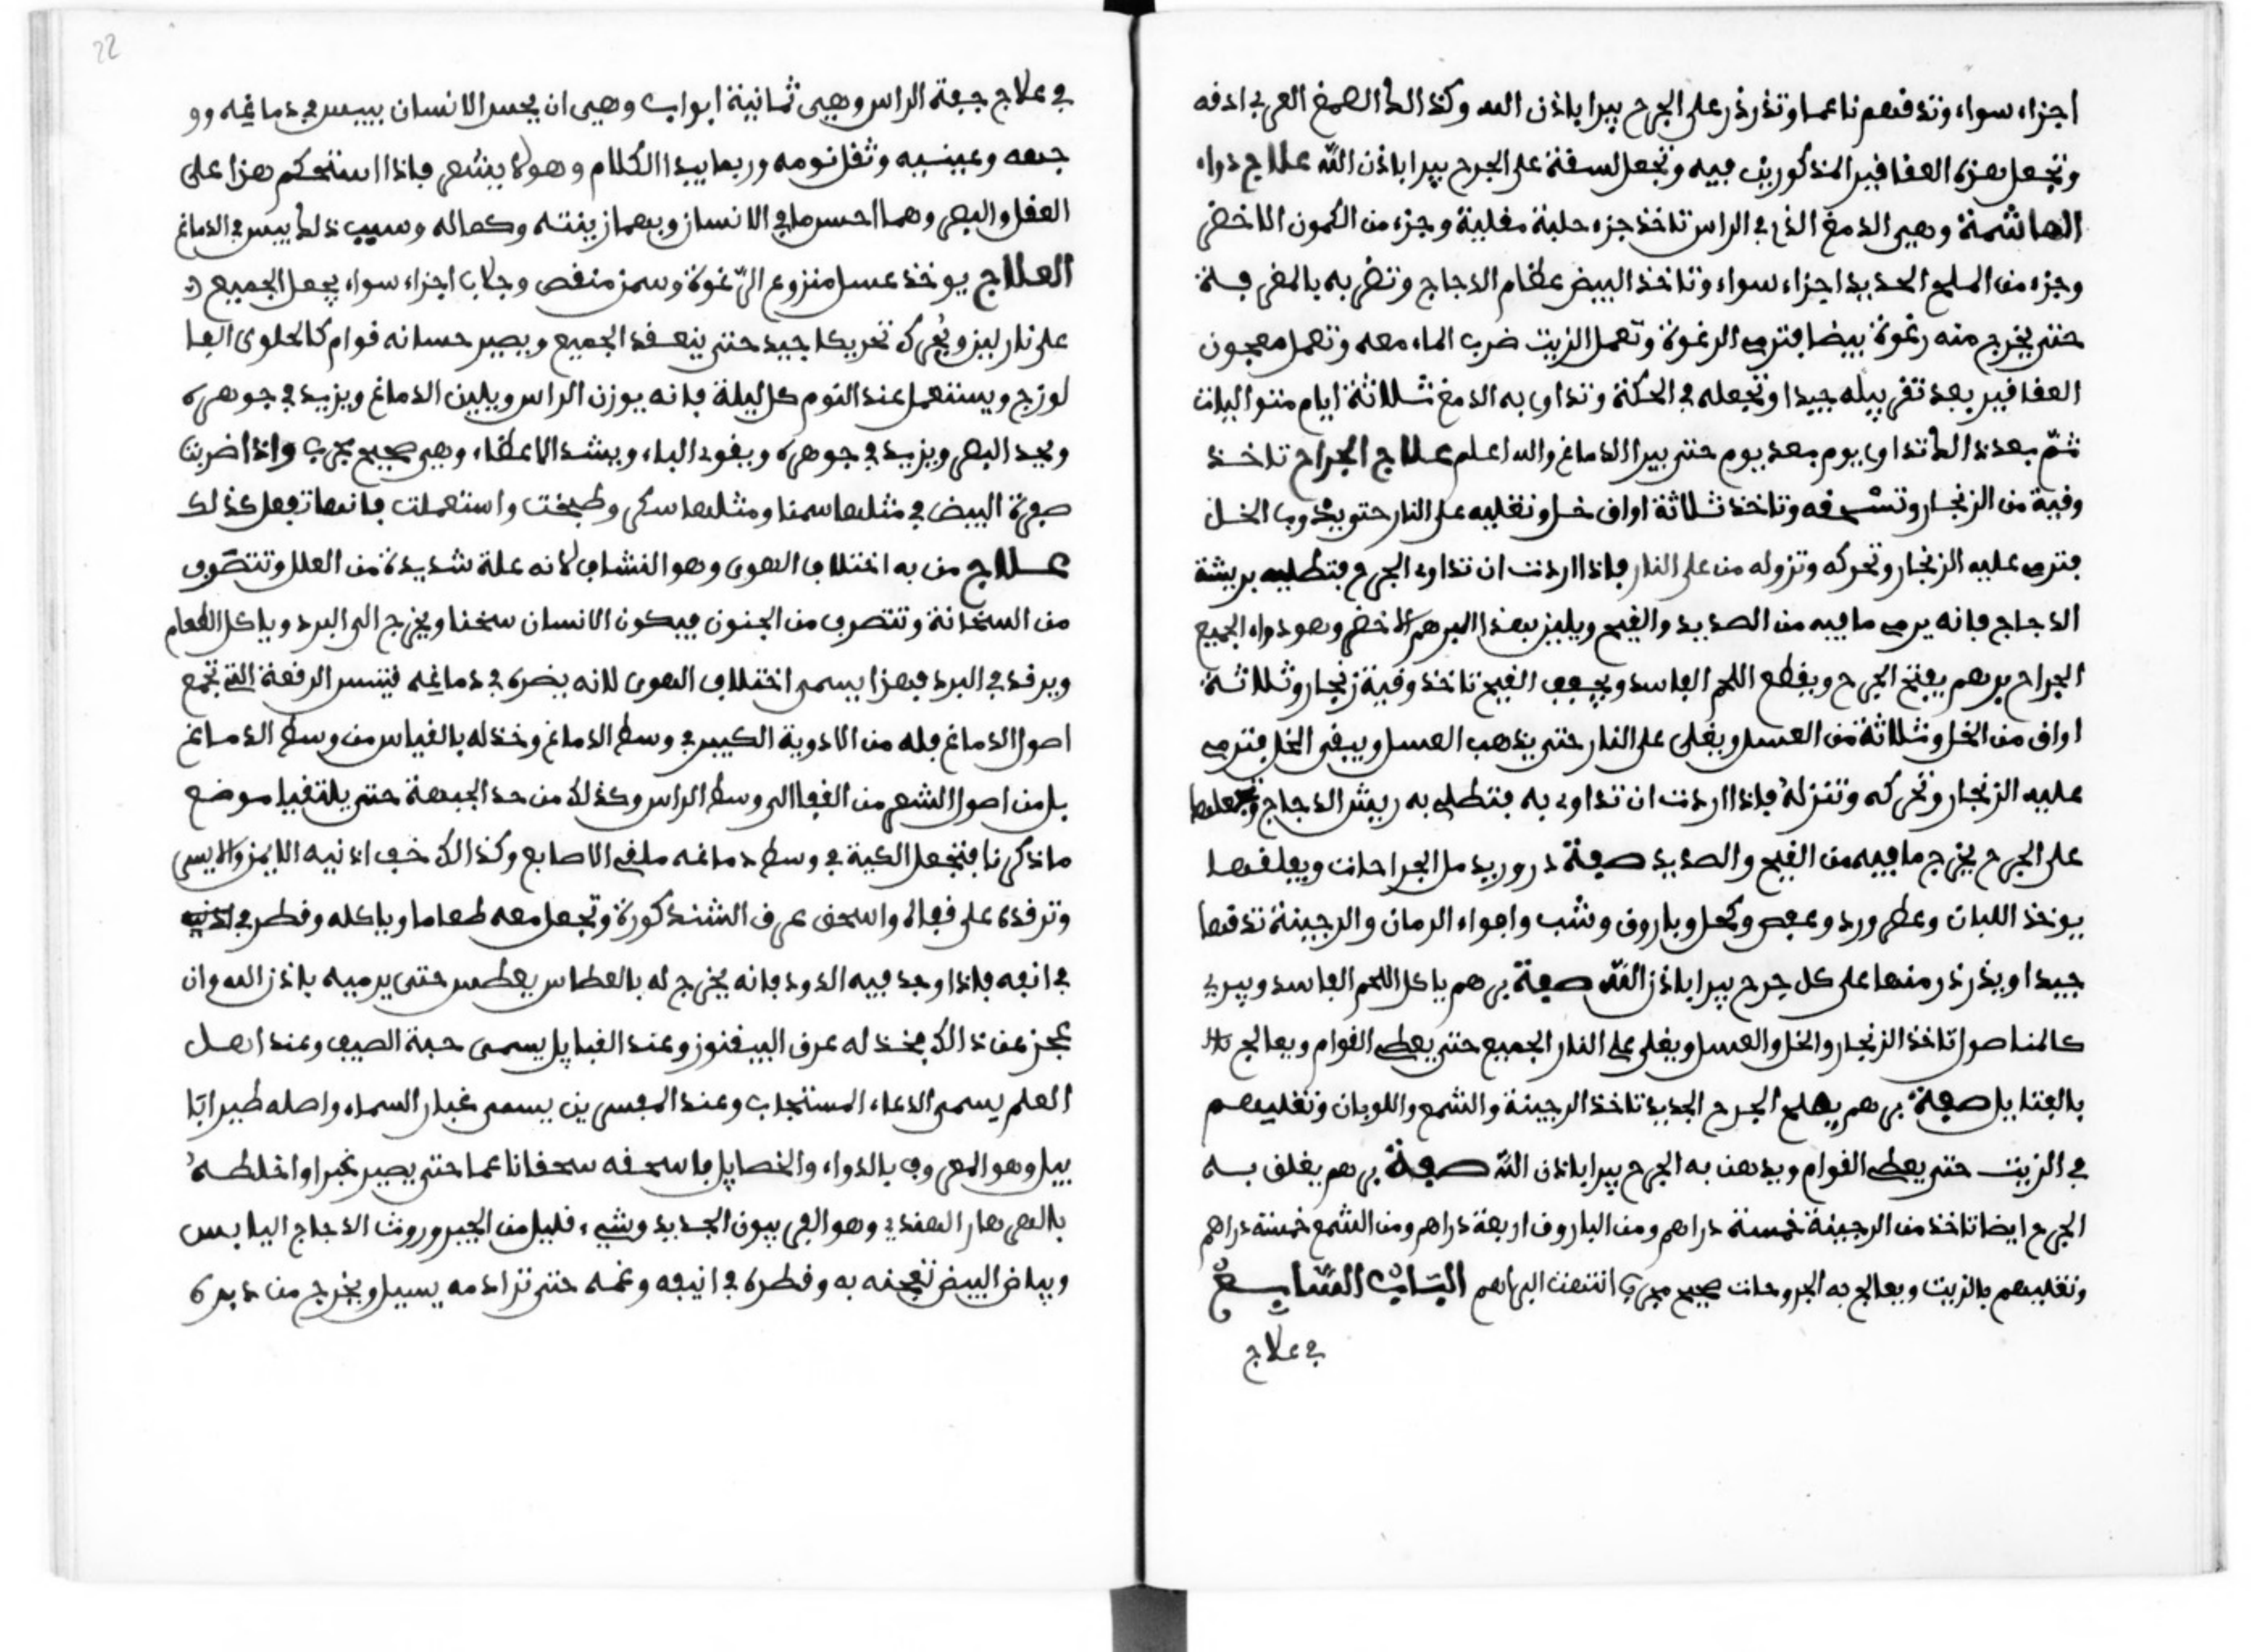 اجزاء سواء وتدقهم ناعما وتذرذر على الجرح يبرا باذن الله وكذالك الصمغ العربي ادقه
وتجعل هزه العقاقير المذكورين فيه وتجعل لسقة على الجرح يبرا باذن الله علاج دواء
الهاشمة وهي الدمغ الذي في الراس تاخذ جزء حلبة مغلية وجزء من الكمون الاخضر
وجزء من الملح الحديد اجزاء سواء وتاخذ البيض عظام الدجاج وتضربه بالمغرفة
حتى يخرج منه رغوة بيضا فترمى الرغوة وتعمل الزيت ضرب الماء معه وتعمل معجون
العقاقير بعد تغربيله جيدا وتجعله في الحكة وتداوى به الدمغ ثلاثة ايام متواليات
ثم بعد ذالك تداوى يوم بعد يوم حتى يبرا الدماغ والله اعلم علاج الجراح تاخذ
وقية من الزنجار وتسحقه وتاخذ ثلاثة اواق خل وتغليه على النار حتى يذوب الخل
فترمى عليه الزنجار وتحركه وتزوله من على النار فاذا اردت ان تداوى الجرح فتطليه بريشة
الدجاج فانه يرمى ما فيه من الصديد والقيح ويليز بهذا البرهم الاخضر وهو دواء الجميع
الجراح برهم يفتح الجرح ويقطع اللحم الفاسد ويجفف القيح تاخذ وقية زنجار وثلاثة
اواق من الخل وثلاثة من العسل ويغلى على النار حتى يذهب العسل ويبقى الخل فترمى
عليه الزنجار وتحركه وتنزله فاذا اردت ان تداوى به فتطلى به ريش الدجاج وتجعلها
على الجرح يخرج ما فيه من القيح والصديد صفة درور يدمل الجراحات ويغلقها
يوخذ اللبان وعطر ورد وعفص وكحل وباروق وشب وافواء الرمان والرجينة تدقها
جيدا ويذرذر منها على كل جرح يبرا باذن الله صفة برهم ياكل اللحم الفاسد ويبري
كالمناصول تاخذ الزنجار والخل والعسل ويغلى على النار الجميع حتى يعطي القوام ويعالج
بالفتايل صفة برهم يصلح الجرح الجديد تاخذ الرجينة والشمع واللوبان وتغليهم
في الزيت حتى يعطى القوام ويدهن به الجرح يبرا باذن الله صفة برهم يغلق به
الجرح ايضا تاخذ من الرجينة خمسة دراهم ومن الباروق اربعة دراهم ومن الشمع خمسة دراهم
وتغليهم بالزيت ويعالج به الجروحات صحيح مجرب انتهت البراهم الباب السابع
في علاج
22
في علاج جبهة الراس وهي ثمانية ابواب وهي ان يحس الانسان بيبس في دماغه وو
جهه وعينيه وثقل نومه وربما يبدا الكلام وهو لا يشعر فاذا استحكم هزا على
العقل والبصر وهما احسن ما في الانسان وبهما زينته وكماله وسبب ذلك يبس في الدماغ
العلاج يوخذ عسل منزوع الرغوة وسمن منقص وجلاب اجزاء سواء يجعل الجميع
على نار لين ويحرك تحريكا جيد حتى ينعقد الجميع ويصير حسانه قوام كالحلوى الفا
لوزج ويستعمل عند النوم كل ليلة فانه يوزن الراس ويلين الدماغ ويزيد في جوهره
ويحد البصر ويزيد في جوهره ويقوى الباء ويشد الاعظاء وهي صحيح مجرب واذا ضربت
صفرة البيض في مثلها سمنا ومثلها سكر وطبخت واستعملت فانها تفعل كذلك
علاج من به اختلاف الهوى وهو النشاف لانه علة شديدة من العلل وتتصرف
من السخانة وتتصرف من الجنون فيكون الانسان سخنا ويخرج الى البرد وياكل الطعام
ويرقد في البرد فهزا يسمى اختلاف الهوى لانه يضره في دماغه فتنسر الرقعة التي تجمع
اصول الدماغ فله من الادوية الكي في وسط الدماغ وخذله بالقياس من وسط الدماغ
بل من اصول الشعر من القفا الى وسط الراس وكذلك من حد الجبهة حتى يلتقيا موضع
ما ذكرنا فتجعل الكية في وسط دماغه ملقى الاصابع وكذالك خف اذنيه الايمن والايسر
وترقده على قفاه واسحق عرق الشندكورة وتجعل معه طعاما وياكله وقطر في اذنيه
في انفه فاذا وجد فيه الدود فانه يخرج له بالعطاس يعطس حتى يرميه باذن الله وان
عجز عن ذالك فخذ له عرق البيقنوز وعند القبايل يسمى حبة الصيف وعند اهل
العلم يسمى الدعاء المستجاب وعند المفسرين يسمى غبار السماء واصله طيرا ابا
بيل وهو المعروف بالدواء والخصايل فاسحقه سحقا ناعما حتى يصير غبرا واخلطه
بالعرهار الهندي وهو الفربيون الجديد وشيء قليل من الجير وروث الدجاج اليابس
وبياض البيض تعجنه به وقطره في انيفه وغمه حتى ترا دمه يسيل ويخرج من دبره